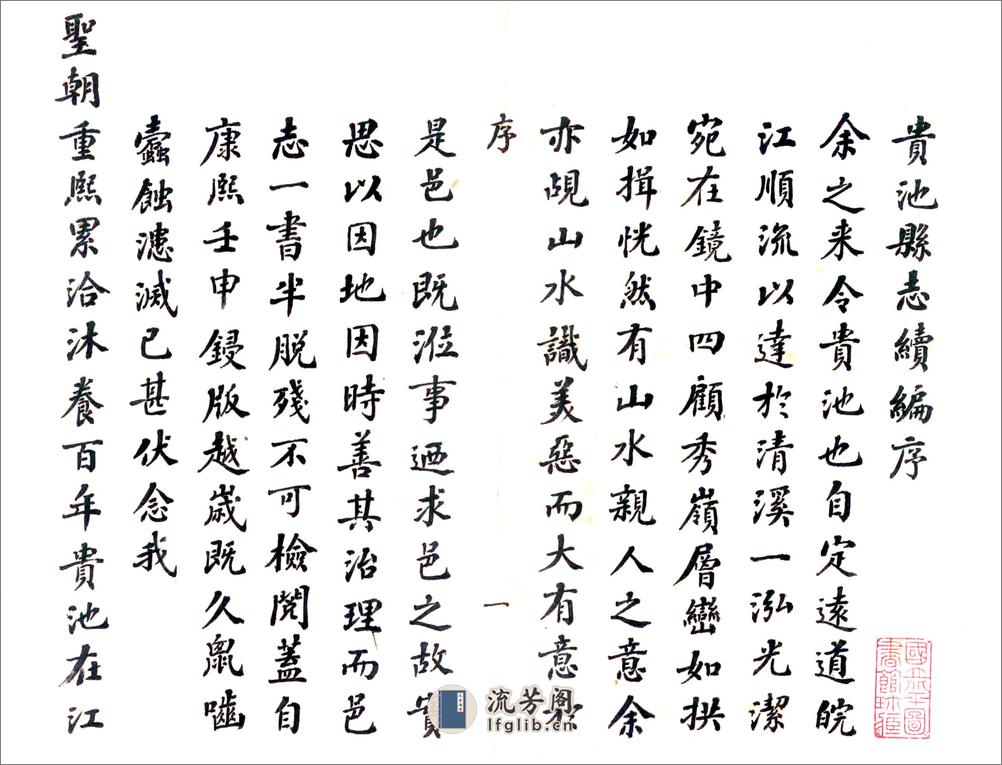 貴池縣志續編序
余之来令貴池也自定遠道皖
江順流以達於清溪一泓光潔
宛在鏡中四顧秀嶺層巒如拱
如揖恍然有山水親人之意余
亦覘山水識美惡而大有意於
序 一
是邑也既涖事迺求邑之故實
思以因地因時善其治理而邑
志一書半脫殘不可檢閱蓋自
康熙壬申鋟版越歲既久鼠嚙
蠹蝕漶滅已甚伏念我
聖朝重熙累洽沐養百年貴池在江
國立北平圖
書館珍藏
流芳阁
lfglib.com.cn